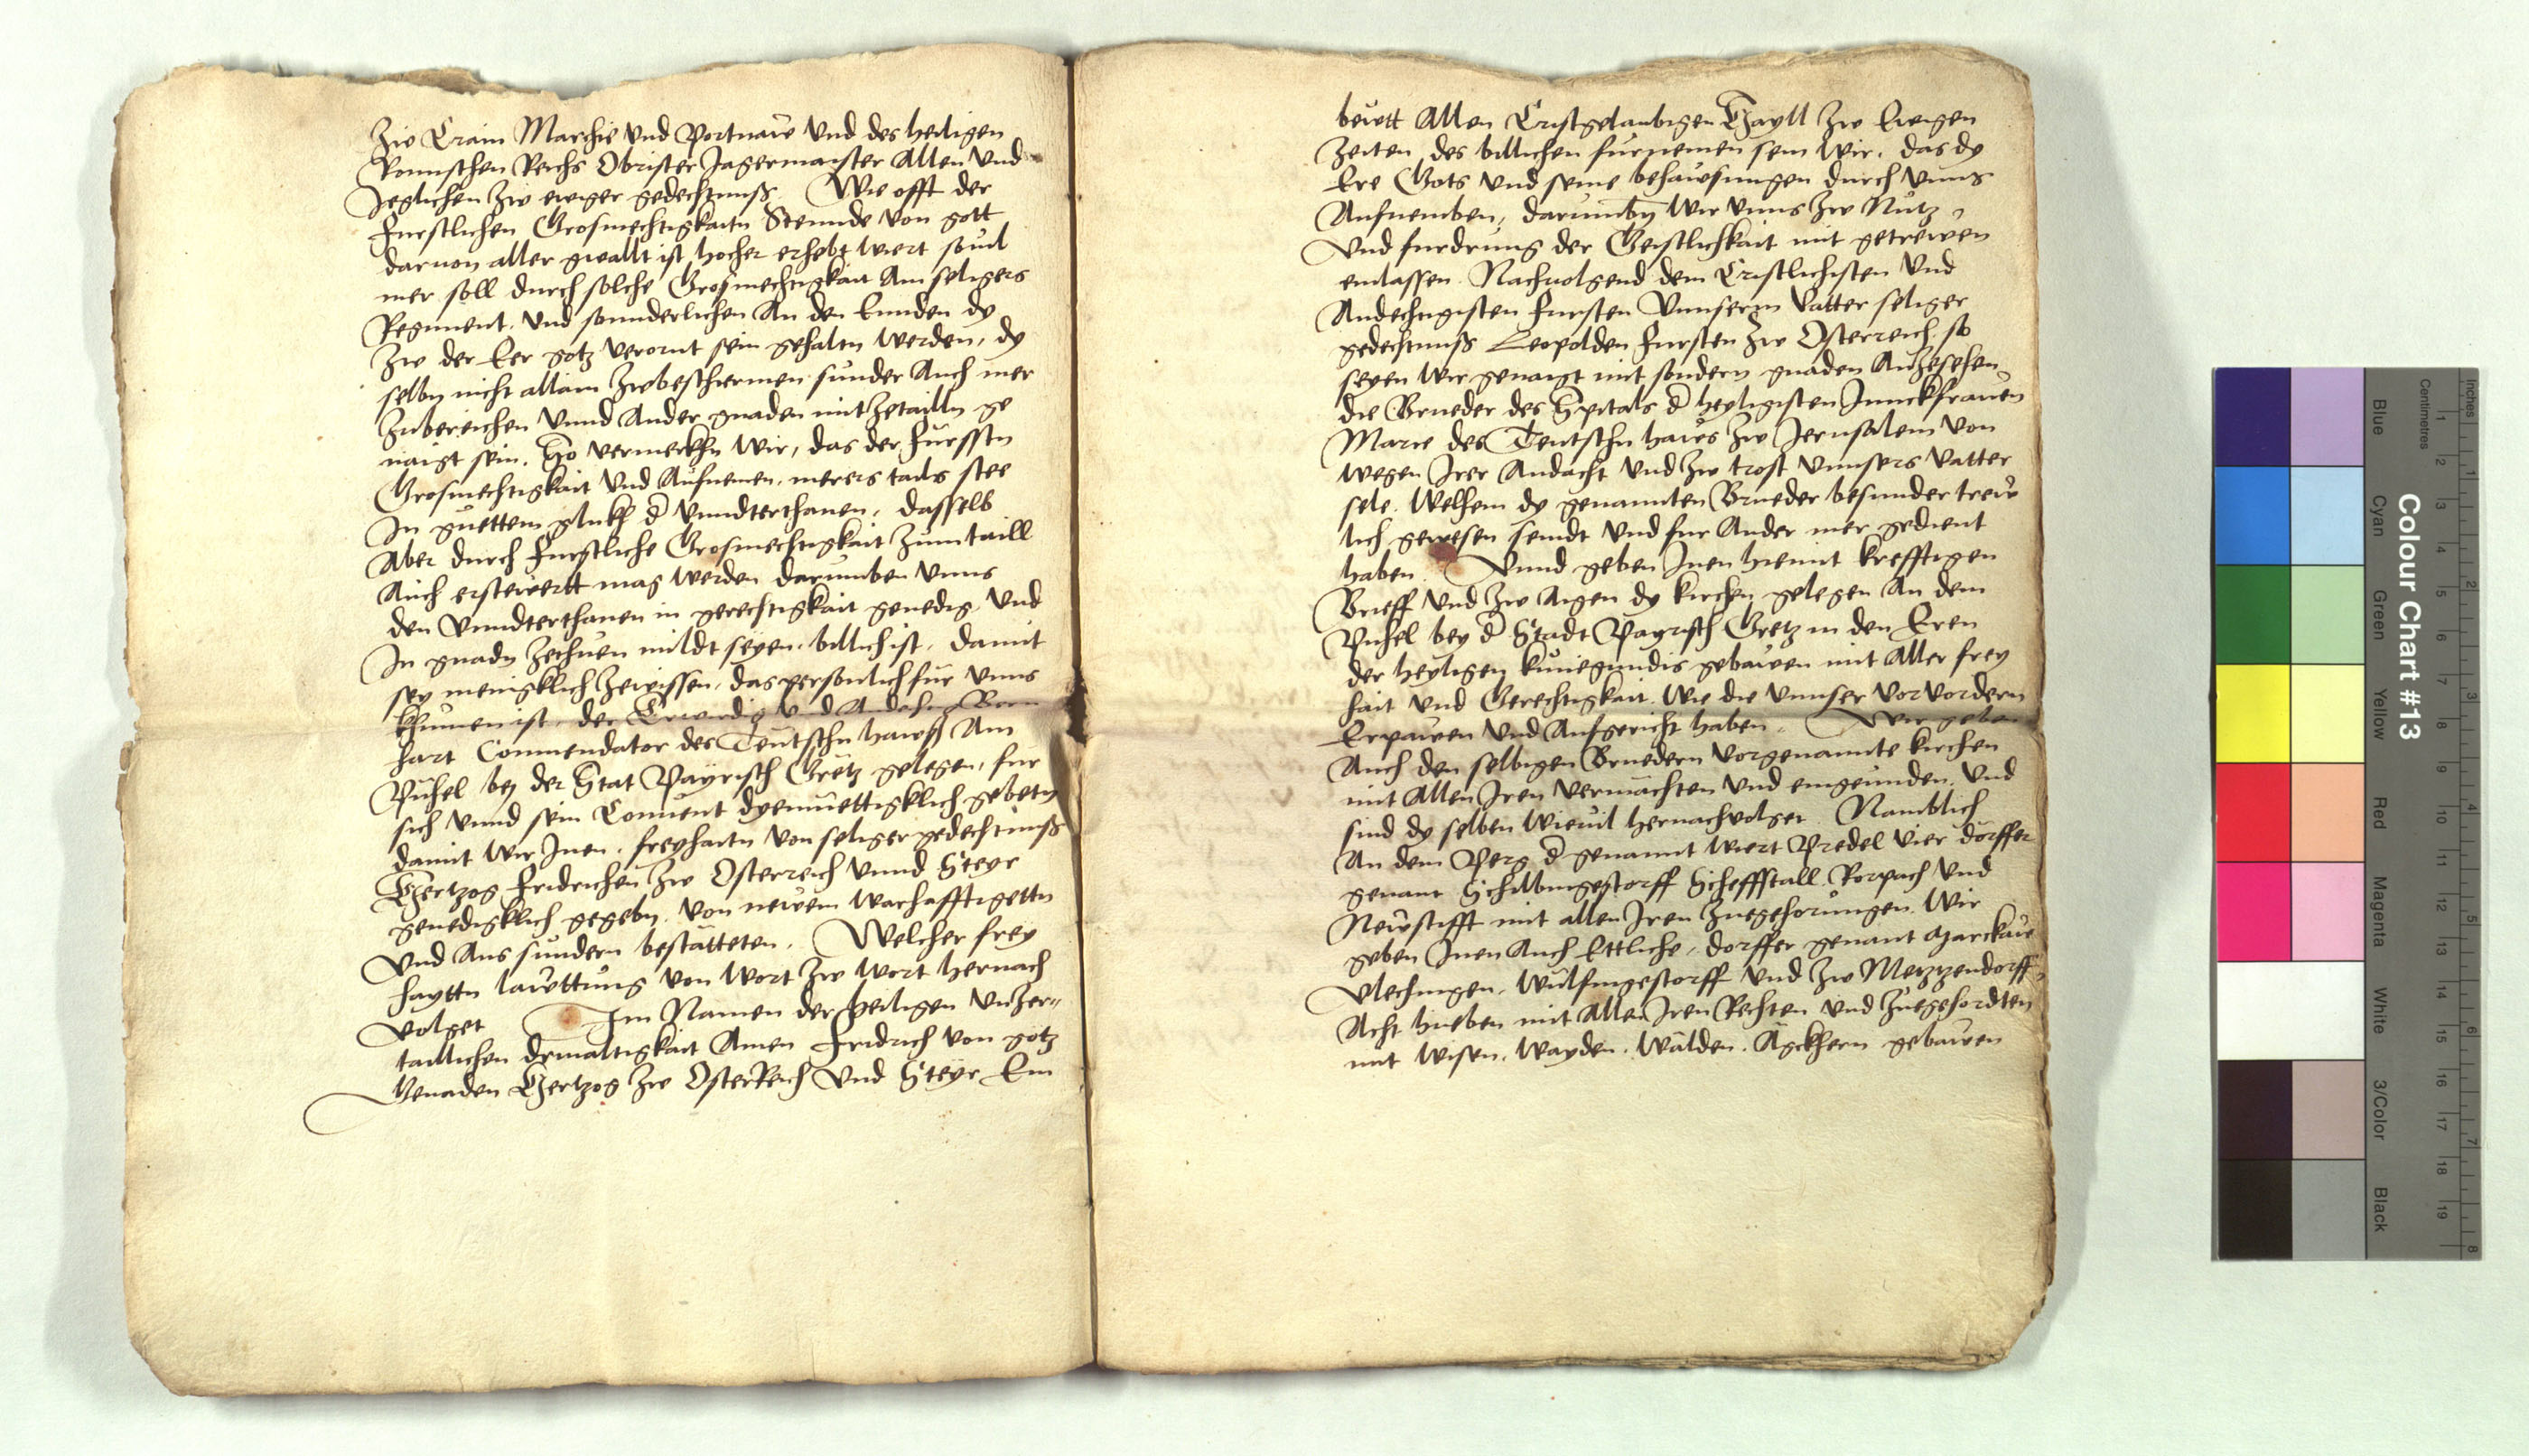 Zw Crain Marchie vnd Portnaw vnd des heiligen
Romischen Reichs Obrister Jagermaister Allen vnd
Jeglichen Zw ewiger gedechtnuss Wie offt der
furstlichen Grosmechtigkaitn Stennde von gott
daruon aller gwallt ist hocher erhebt wiert souil
mer soll durch solche Grosmechtigkait Am seligers
Regiment. vnd sonnderlichen An den Ennden dy
Zw der Eer gotz verornt sein gehaltn werden, dy
selbn nicht allain Zwbeschermen sunder Auch mer
Zubereichen vnnd Ander gnaden mit Zetailln ge
naigt sein. So vermerkhn wir, das der furssten
Grosmechtigkait vnd Aufnemen, merers tails stee
In guettem glukh d vnndterthanen, dasselb
Aber durch furstliche Grosmechtigkait Zumtaill
Auch erstewertt mag werden darumben vnns
den vnndterthanen in gerechtigkait genedig vnd
In gnadn Zechuen mildt seyen. billich ist, damit
sey menigklich Zewissen, das personlich fur vnns
khumen ist, der Erwirdig vnd Andechtig Bern
hart Commendator des Teutschn hawss Am
Puhel bey der Stat Payrisch Gretz gelegen, fur
sich vnnd sein Conuent dyemuettigklich gebetn
damit wir Jnen, freyhaitn von seliger gedechtnuss
Hertzog fridrichen Zw Osterreich vnnd Steyr
genedigklich gegebn. von newem warhafftigettn
vnd Aus sundern bestatteten. Welcher frey
hayttn lawttung von wort Zw wort hernach
volget Im Namen der heiligen vnZer=
taillichen driualtigkait Amen Fridrich von gotz
Genaden Hertzog Zw OsterReich vnd Steyr Em
bewtt Allen Cristgelaubigen Hayll Zw Ewigen
Zeiten des billichen furnemen sein wir, das dy
Ere Gots vnd seine behawsungen durch vnns
Aufnemben, darumbn wir vnns Zw Nutz
vnd furdrung der Geistlichkait mit getrewen
einlassen Nachuolgend dem Cristlichisten vnd
Andechtigisten fursten vnnserm vatter seliger
gedechtnuss Leopolden fursten Zw Osterreich, so
seyen wir genaigt mit sondern gnaden Anzesehen
die Brueder des Spitals d heyligisten Junckfrauen
Marie des Teutschn haws Zw Jerusalem von
wegen Jrer Andacht vnd Zw trost vnnsers vatter
sele. welhem dy genannten Brueder besunder trew
lich gewesen seindt vnd fur Ander mer gedient
haben. Vnnd geben Jnen hiemit krefftigen
Brieff vnd Zw Aigen dy kirchen gelegen An dem
Puhel bey d Stadt Payrisch Gretz in den Eren
der heyligen kuniegundis gebawen mit Aller frey
hait vnd Gerechtigkait. wie die vnnser vorvordern
Erpawen vnd Aufgericht haben. Wir geben
Auch den selbigen Bruedern vorgenannte kirchen
mit Allen Jren vermachten vnd eingeunden. vnd
sind dy selben wieuil hernachvolget Namblich
An dem Perg d genannt wiert Predel vier dorffer
genant Schilbingestorff Scheffstall Rorpach vnd
Newstifft mit allen Jren Zuegehorungen. wir
geben Jnen Auch Ettliche, dorffer genant Harckaw
Vlechingen, wulfingestorff vnd Zw Metzzendorff
Acht hueben mit Allen Jren Rechten vnd Zuegehordten
mit wisen. wayden. walden. Agkhern gebawen